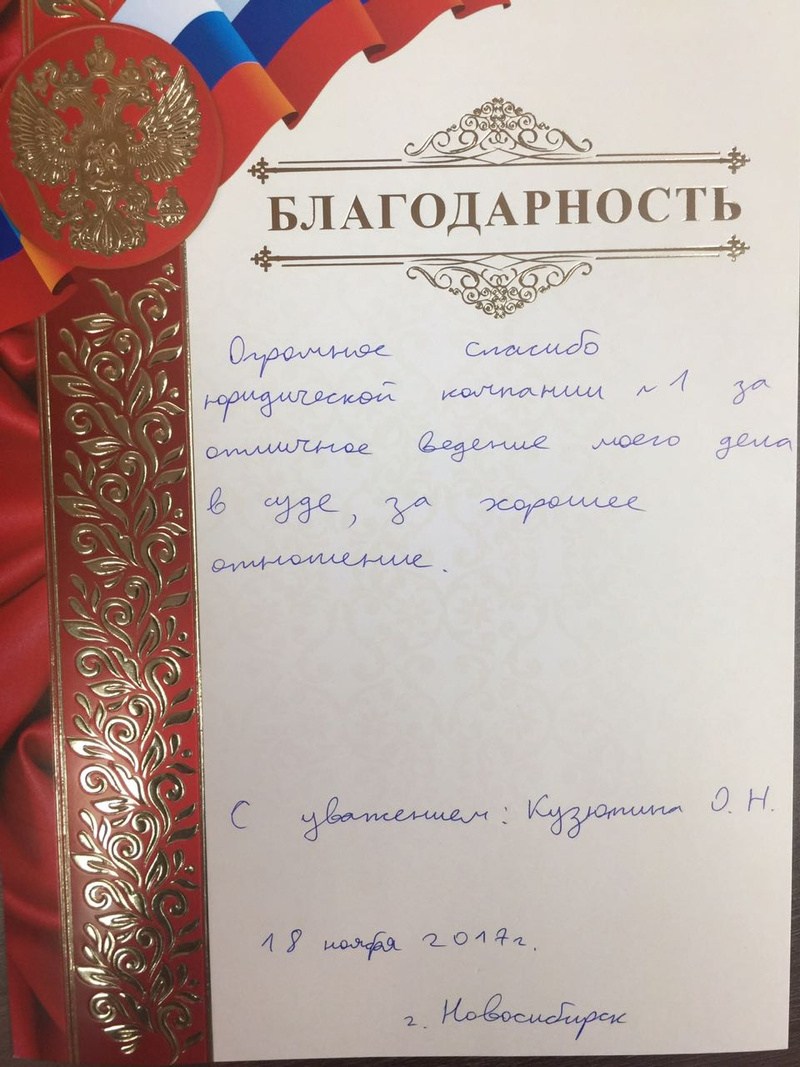 БЛАГОДАРНОСТЬ
Огромное спасибо
юридической компании №1 за
отличное ведение моего дела
в суде, за хорошее
отношение.
С уважением: О. Н.
18 ноября 2017г.
г. Новосибирск